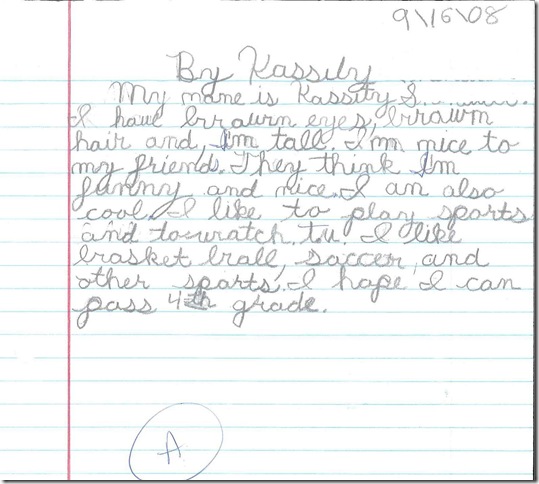 9\16\08
By Kassity
My name is Kassity S.
I have brrawrn eyes, brrawrn
hair and, I'm tall. I'm nice to
my friends. They think I'm
funny and nice. I an also
cool. I like to play sports
and to wratch t.v. I like
brasket brall, saccer, and
other sparts. I hope I can
pass 4th grade.
A